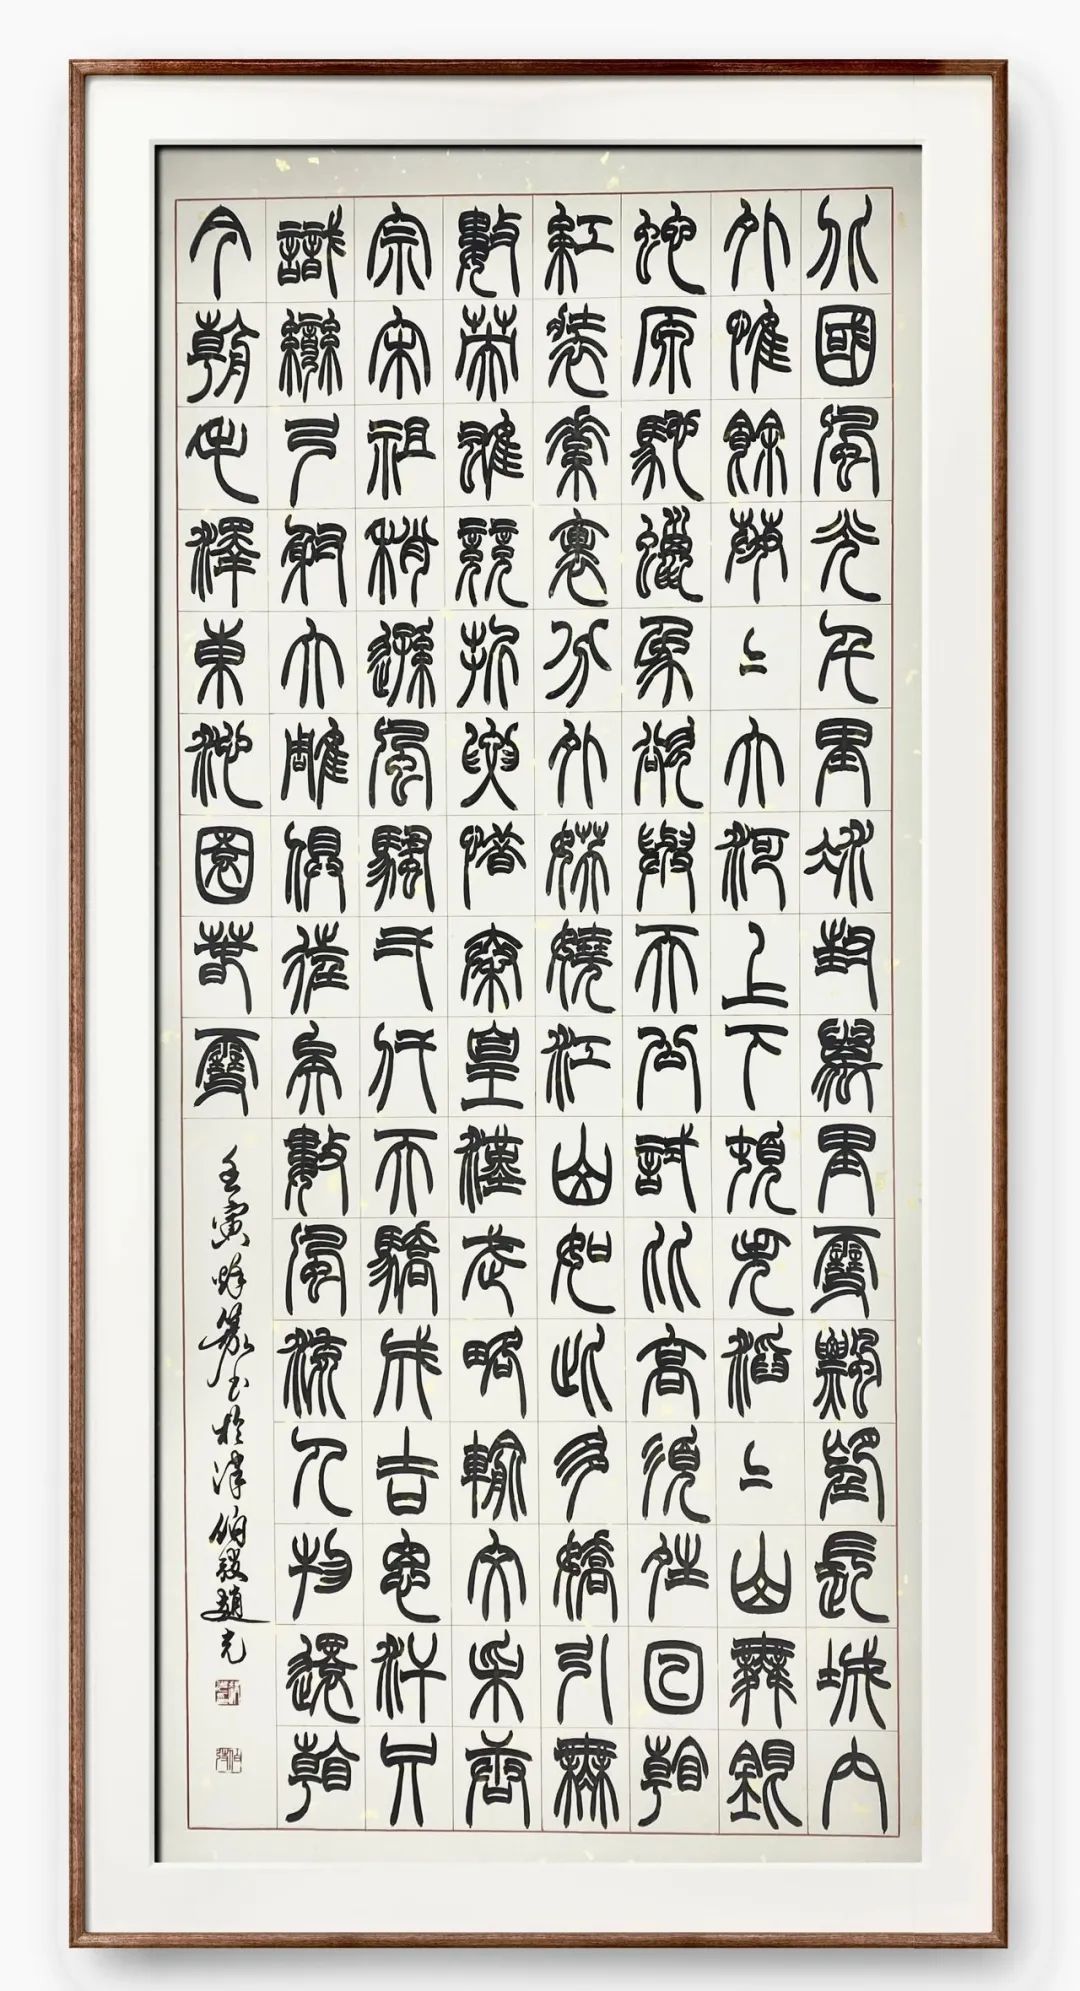 北國風光千里冰封萬里雪飄望長城內
外惟餘莽〻大河上下頓失滔〻山舞銀
蛇原馳蠟象欲與天公試比高須晴日看
紅裝素裹分外妖嬈江山如此多嬌引無
數英雄競折腰惜秦皇漢武略輸文采唐
宗宋祖稍遜風騷弌代天驕成吉思汗只
識彎弓射大雕俱往矣數風流人物還看
今朝毛澤東沁園春雪
壬寅篆書於津趙光